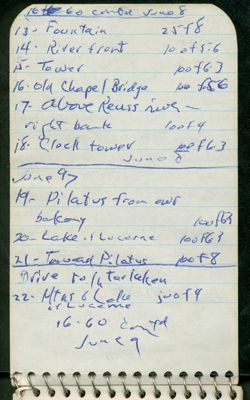 60 contd June 8
13- Fountain 25 f8
14- River front 100 f5-6
15- Tower 100 f6.3
16- Old Chapel/Bridge 100 f5.6
17- Above Reuss river-
right bank 100 f4
18- Clock tower 100 f6.3
June 8
June 9
19- Pilatus from our
balcony 100 f6.3
20- Lake of Lucerne 100 f6.3
21- Toward Pilatus 100 f-8
Drive to Interlaken
22- Mtns & Lake f4
of Lucerne
16-60 contd
June 9